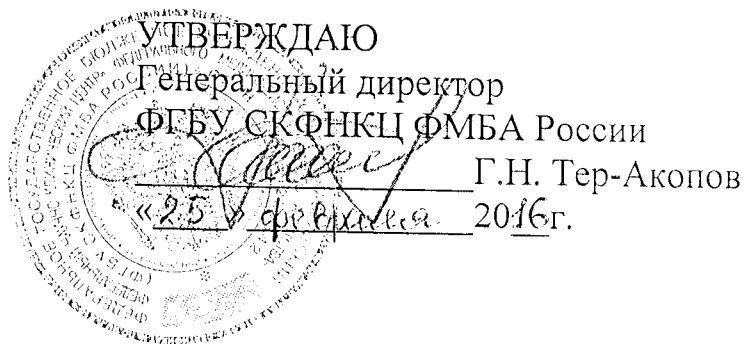 УТВЕРЖДАЮ
Генеральный директор
ФГБУ СКФНКЦ ФМБА России
Г.Н. Тер-Акопов
«25» февраля 2016г.